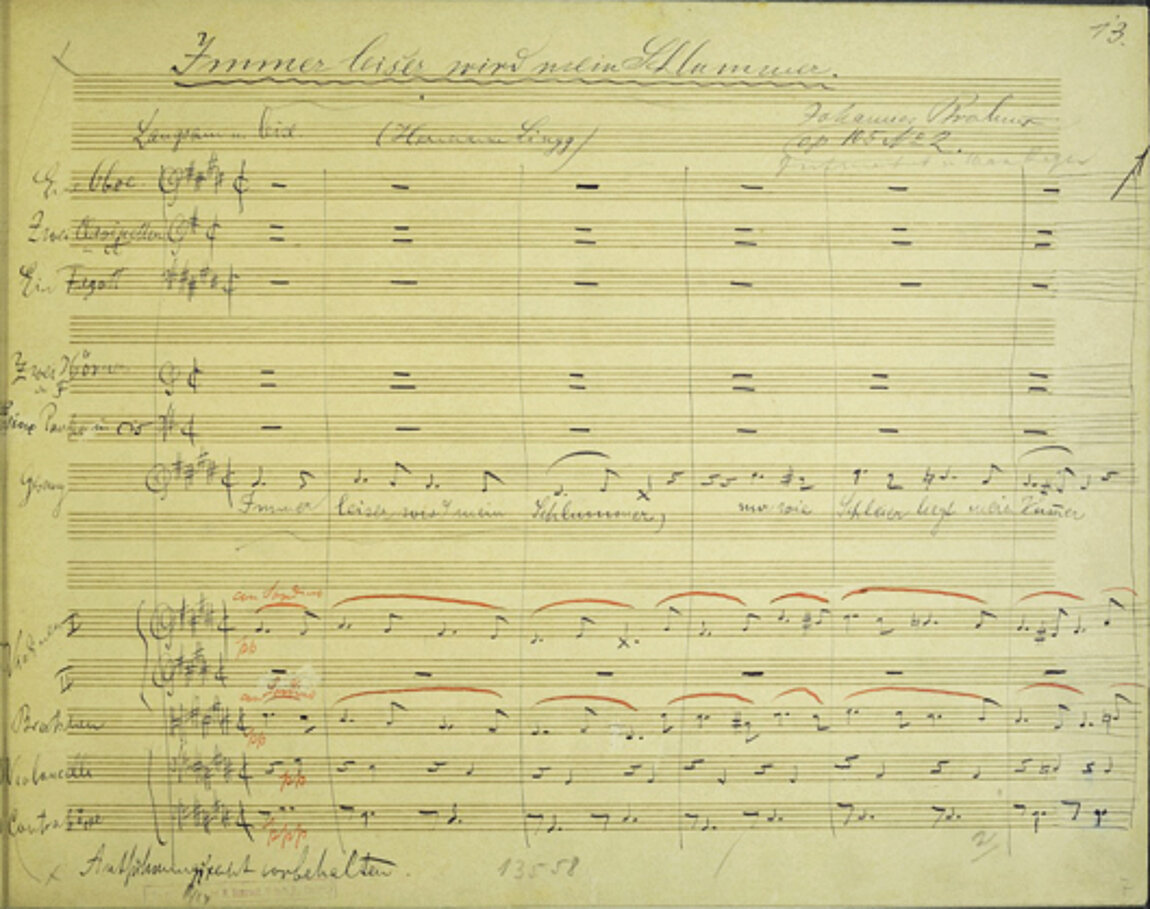 13.
Immer leiser wird mein Schlummer.
Langsam u. leis. (Hermann Lingg) Johannes Brahms
op 105 No 2.
Eine Oboe
Zwei Clarinetten
Ein Fagott
Zwei Hörner
in F
Pauken in Cis
Gesang
Immer leiser wird mein Schlummer, nur wie Schleier liegt mein Kummer
con Sordino
Violinen I
pp
II
con Sordino
Bratschen
pp
Violoncelli
pp
Contrabässe
ppp
2
Aufführungsrecht vorbehalten. 13558